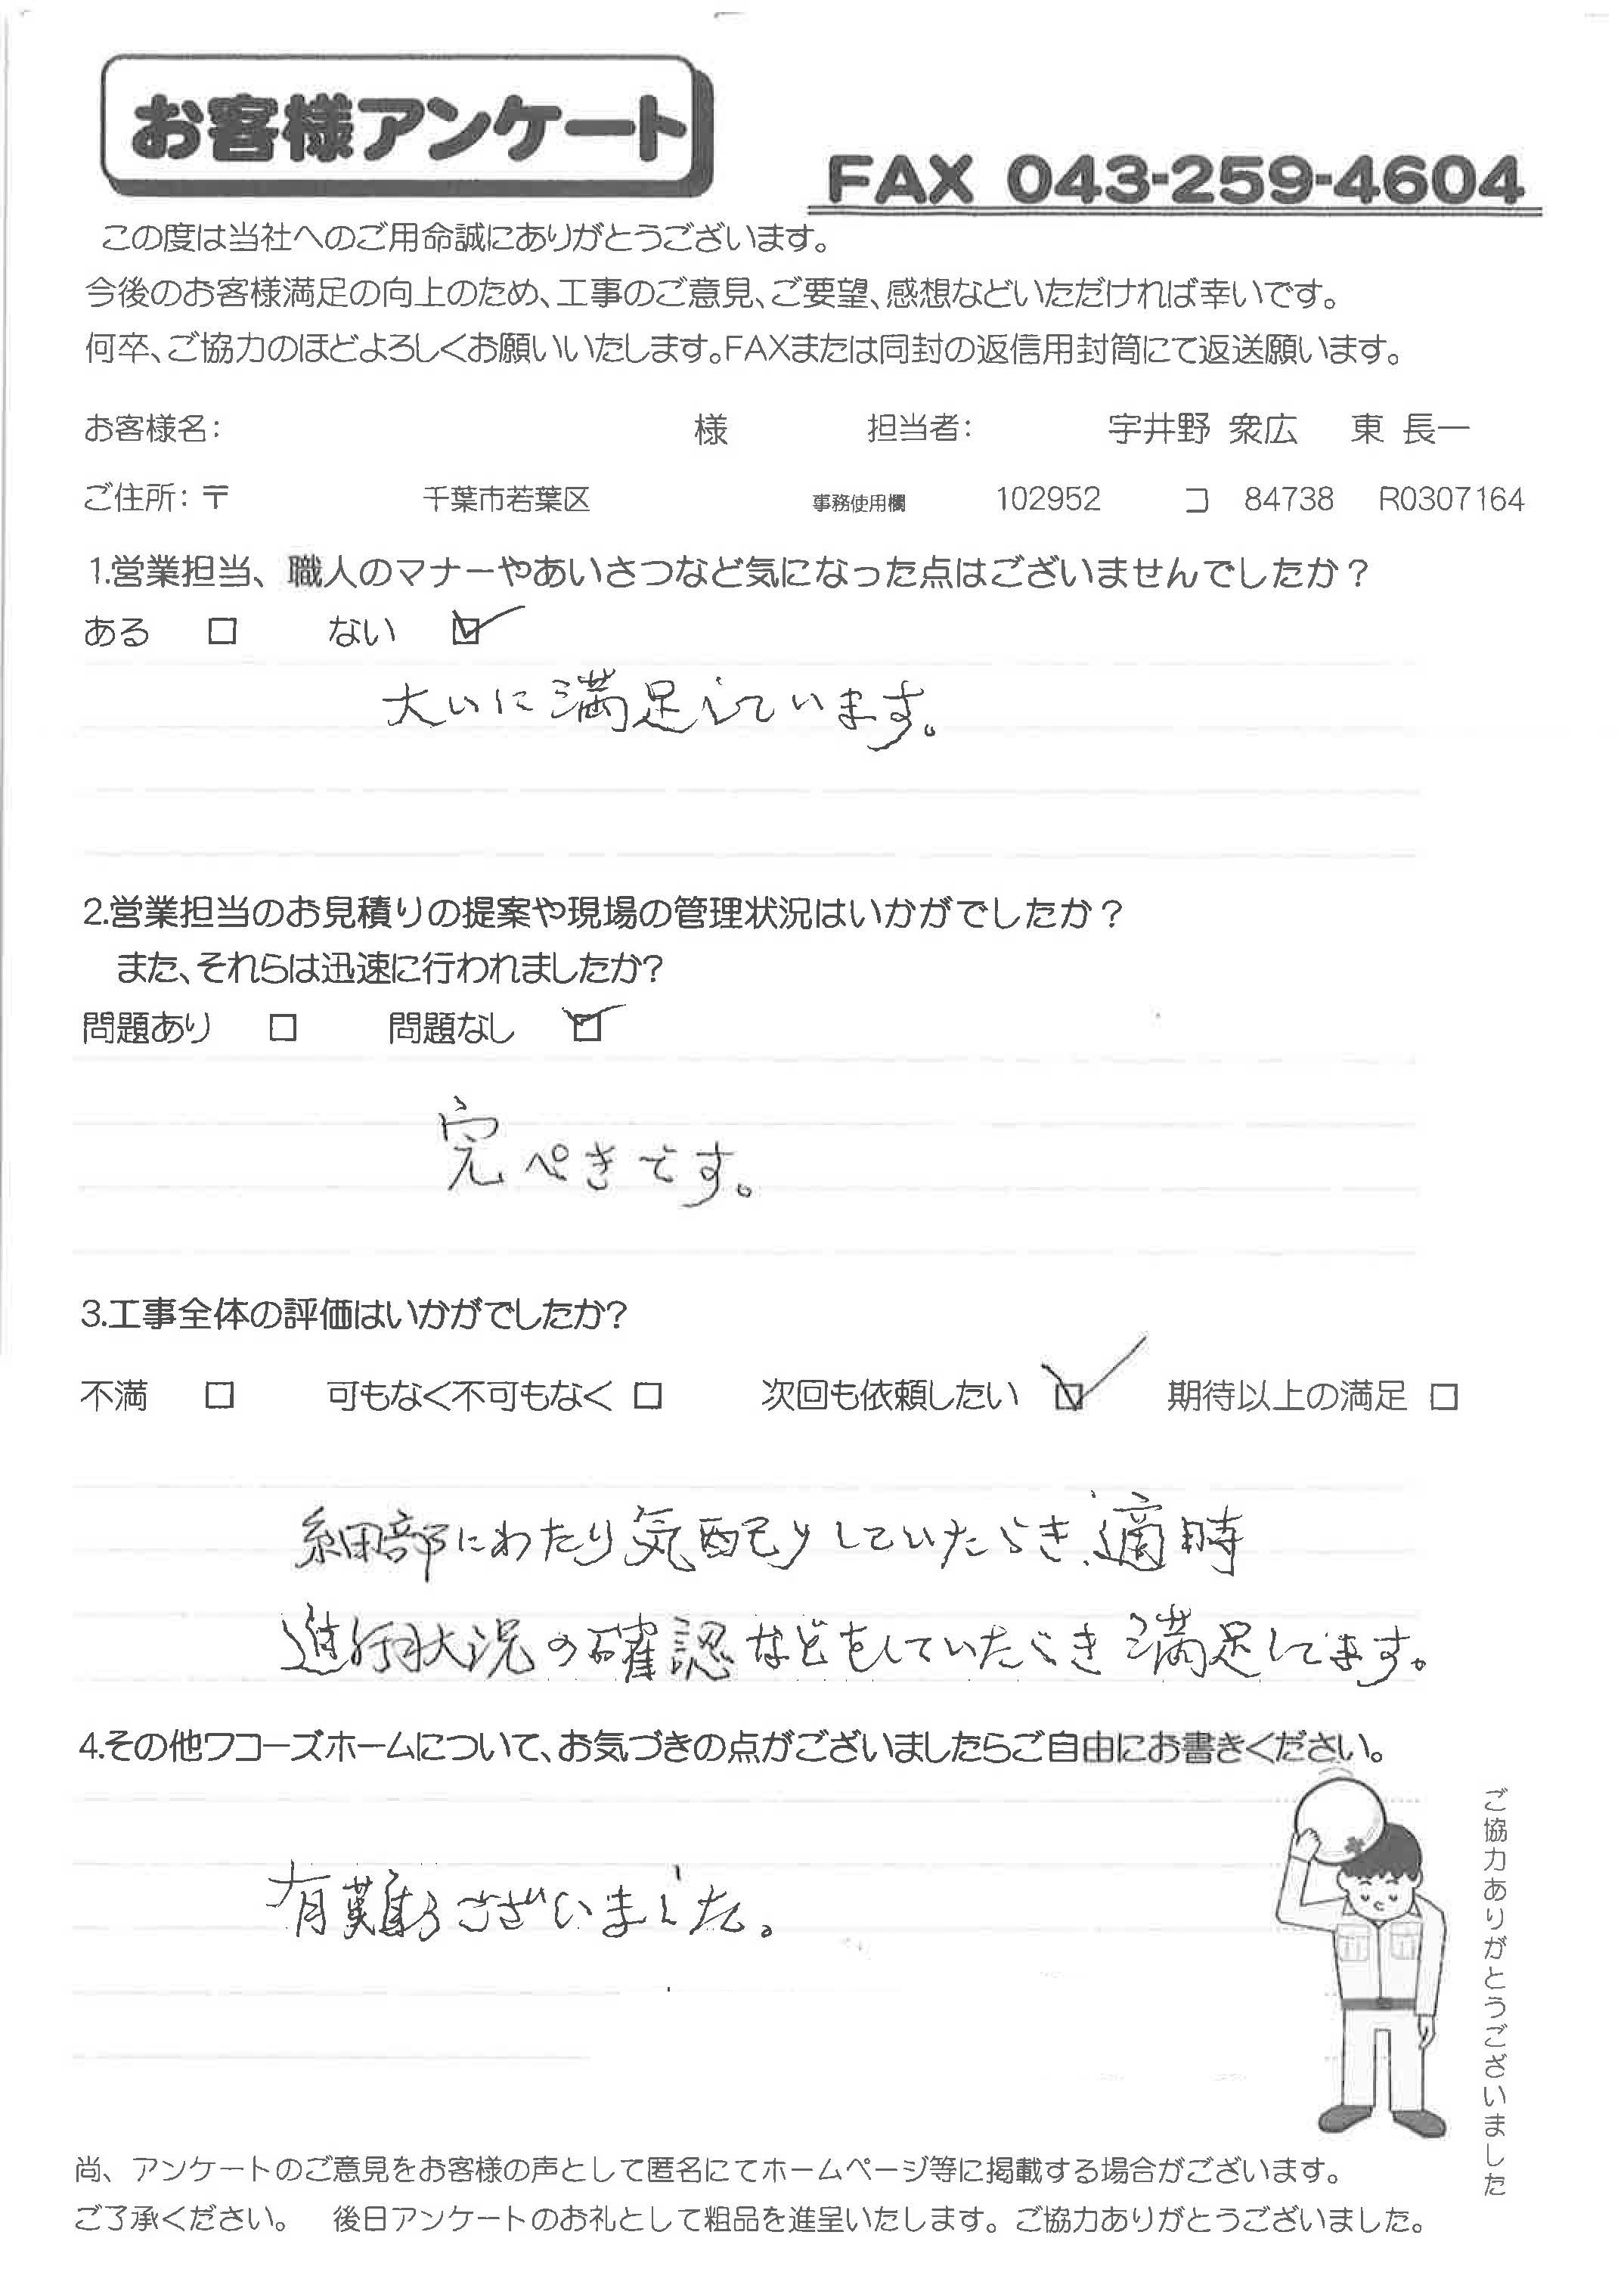 お客様アンケート
FAX 043-259-4604
この度は当社へのご用命誠にありがとうございます。
今後のお客様満足の向上のため、工事のご意見、ご要望、感想などいただければ幸いです。
何卒、ご協力のほどよろしくお願いいたします。FAXまたは同封の返信用封筒にて返送願います。
お客様名: 様 担当者: 宇井野 衆広 東 長一
ご住所: 〒 千葉市若葉区 事務使用欄 102952 コ 84738 R0307164
1.営業担当、職人のマナーやあいさつなど気になった点はございませんでしたか？
ある □ ない ☑
大いに満足しています。
2.営業担当のお見積りの提案や現場の管理状況はいかがでしたか？
また、それらは迅速に行われましたか?
問題あり □ 問題なし ☑
完ぺきです。
3.工事全体の評価はいかがでしたか?
不満 □ 可もなく不可もなく □ 次回も依頼したい ☑ 期待以上の満足 □
細部にわたり気配りしていただき、適時
進行状況の確認などをしていただき満足してます。
4.その他ワコーズホームについて、お気づきの点がございましたらご自由にお書きください。
有難うございました。
ご協力ありがとうございました
尚、アンケートのご意見をお客様の声として匿名にてホームページ等に掲載する場合がございます。
ご了承ください。 後日アンケートのお礼として粗品を進呈いたします。ご協力ありがとうございました。